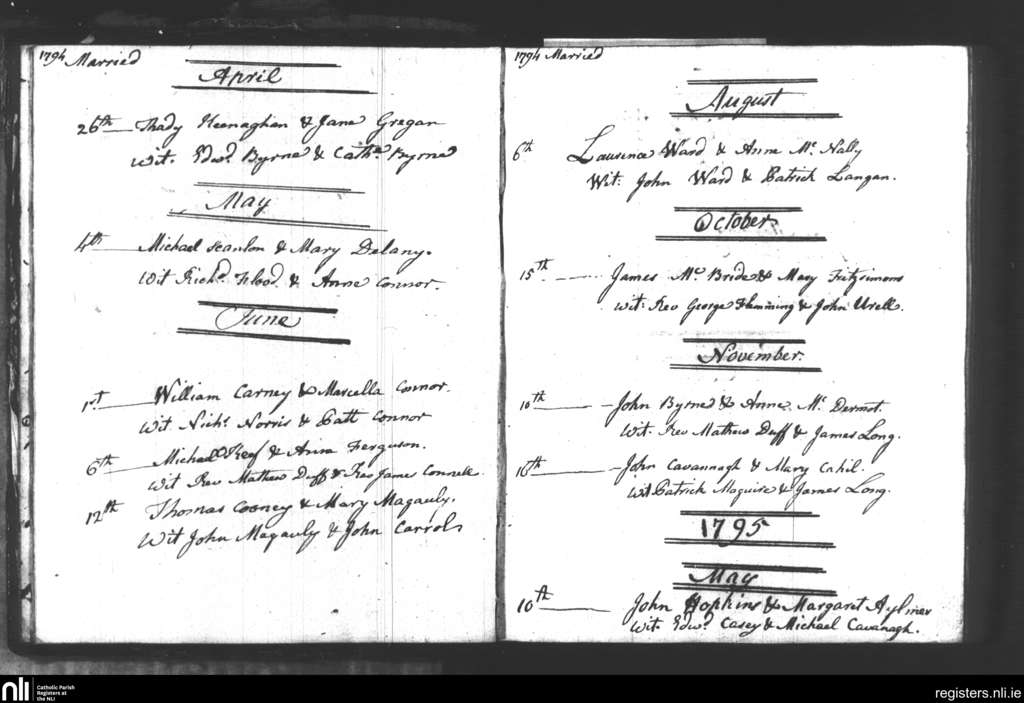 1794 Married
April
26th Thady Keenaghan & Jane Gregan
Wit. Edwd. Byrne & Cathe. Byrne
May
4th Michael Scanlon & Mary Delany.
Wit Richd. Flood & Anne Connor.
June
1st William Carney & Marcella Connor.
Wit Nichs. Norris & Patt Connor
6th Michael & Anne Ferguson.
Wit Rev Mathew Duff & Rev James Connell
12th Thomas Cooney & Mary Magauly.
Wit John Magauly & John Carrol
1794 Married
August
6th Laurence Ward & Anne Mc. Nally
Wit: John Ward & Patrick Langan.
October
15th James Mc. Bride & Mary Fitzsimons
Wit: Rev George Flemming & John Urell.
November.
10th John Byrne & Anne Mc. Dermot.
Wit. Rev Mathew Duff & James Long.
16th John Cavannagh & Mary Cahil.
Wit Patrick Maguire & James Long.
1795
May
10th John Hopkins & Margaret Aylmer
Wit. Edwd. Casey & Michael Cavanagh.
nli
Catholic Parish
Registers at
the NLI
registers.nli.ie